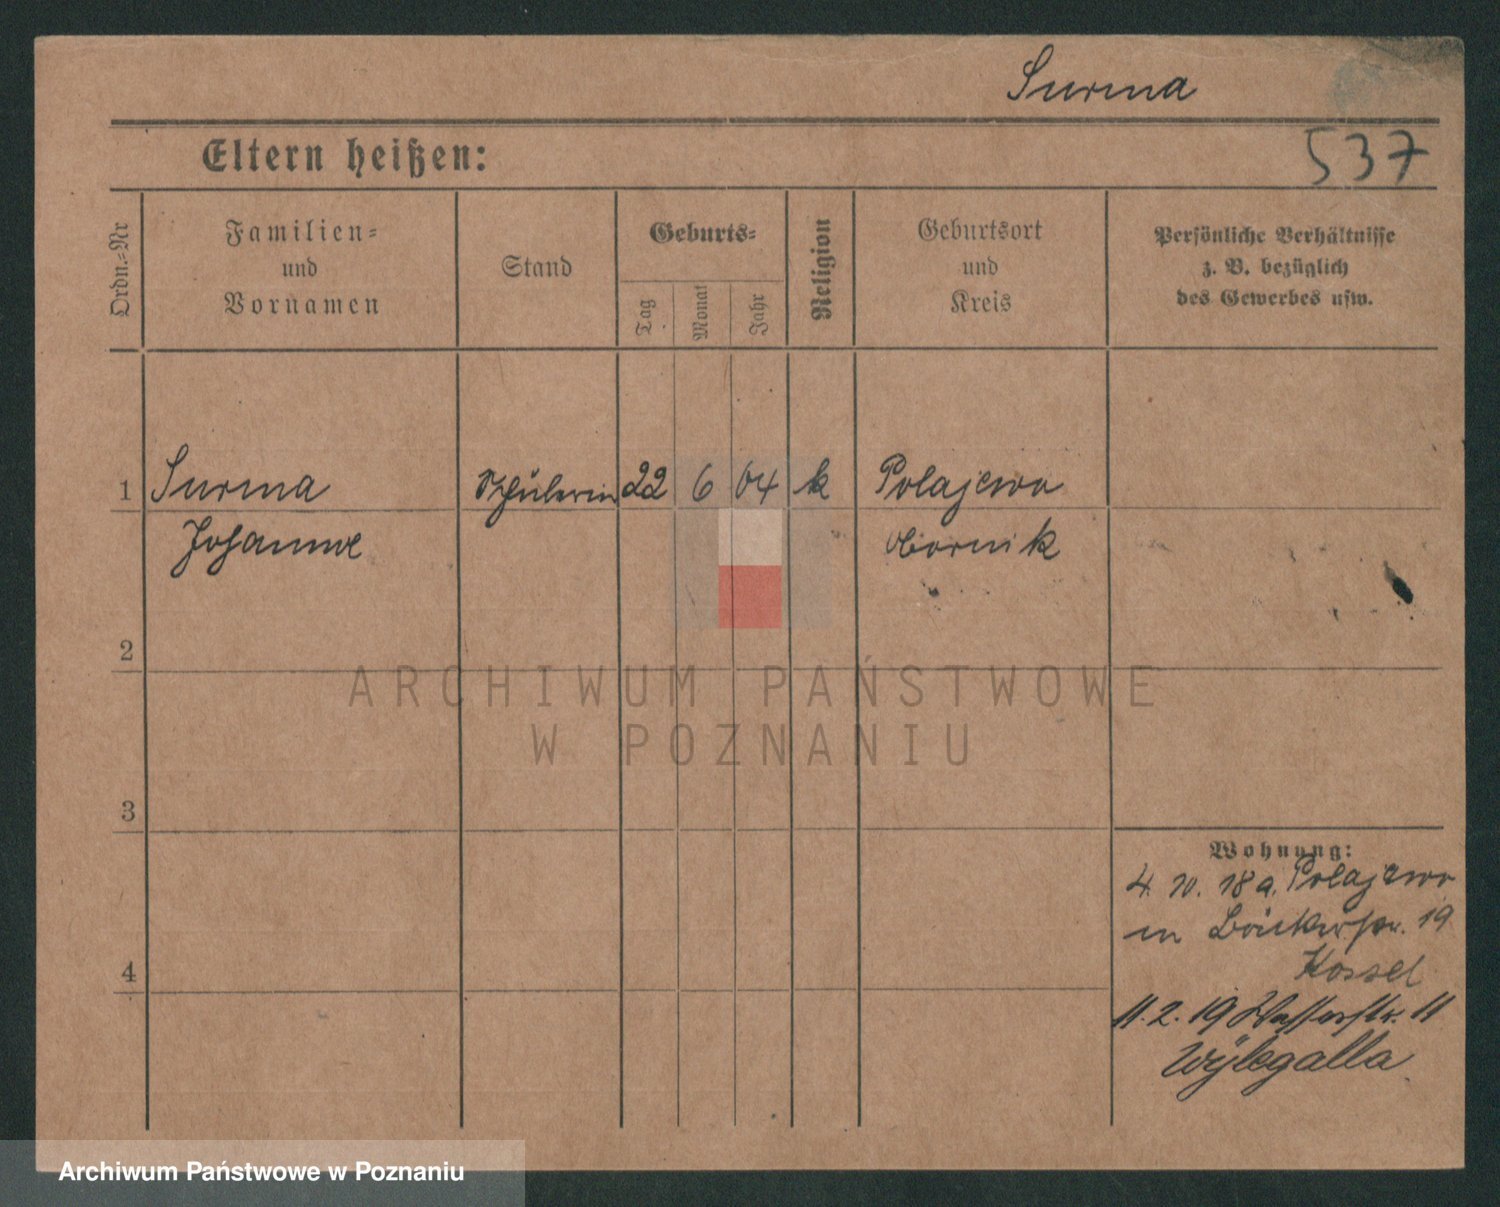 Surma
Eltern heißen:
537
Ordn.-Nr
Familien-
und
Vornamen
Stand
Geburts-
Tag
Monat
Jahr
Religion
Geburtsort
und
Kreis
Persönliche Verhältnisse
z. B. bezüglich
des Gewerbes usw.
1 Surma Schülerin 22 6 04 k Polajewo
Johanne Obornik
2
ARCHIWUM PAŃSTWOWE
W POZNANIU
3
Wohnung:
4. 10. 18 a. Polajewo
in Bäckerstr. 19
Kossel
4
11. 2. 19 Wasserstr. 11
Wylegalla
Archiwum Państwowe w Poznaniu